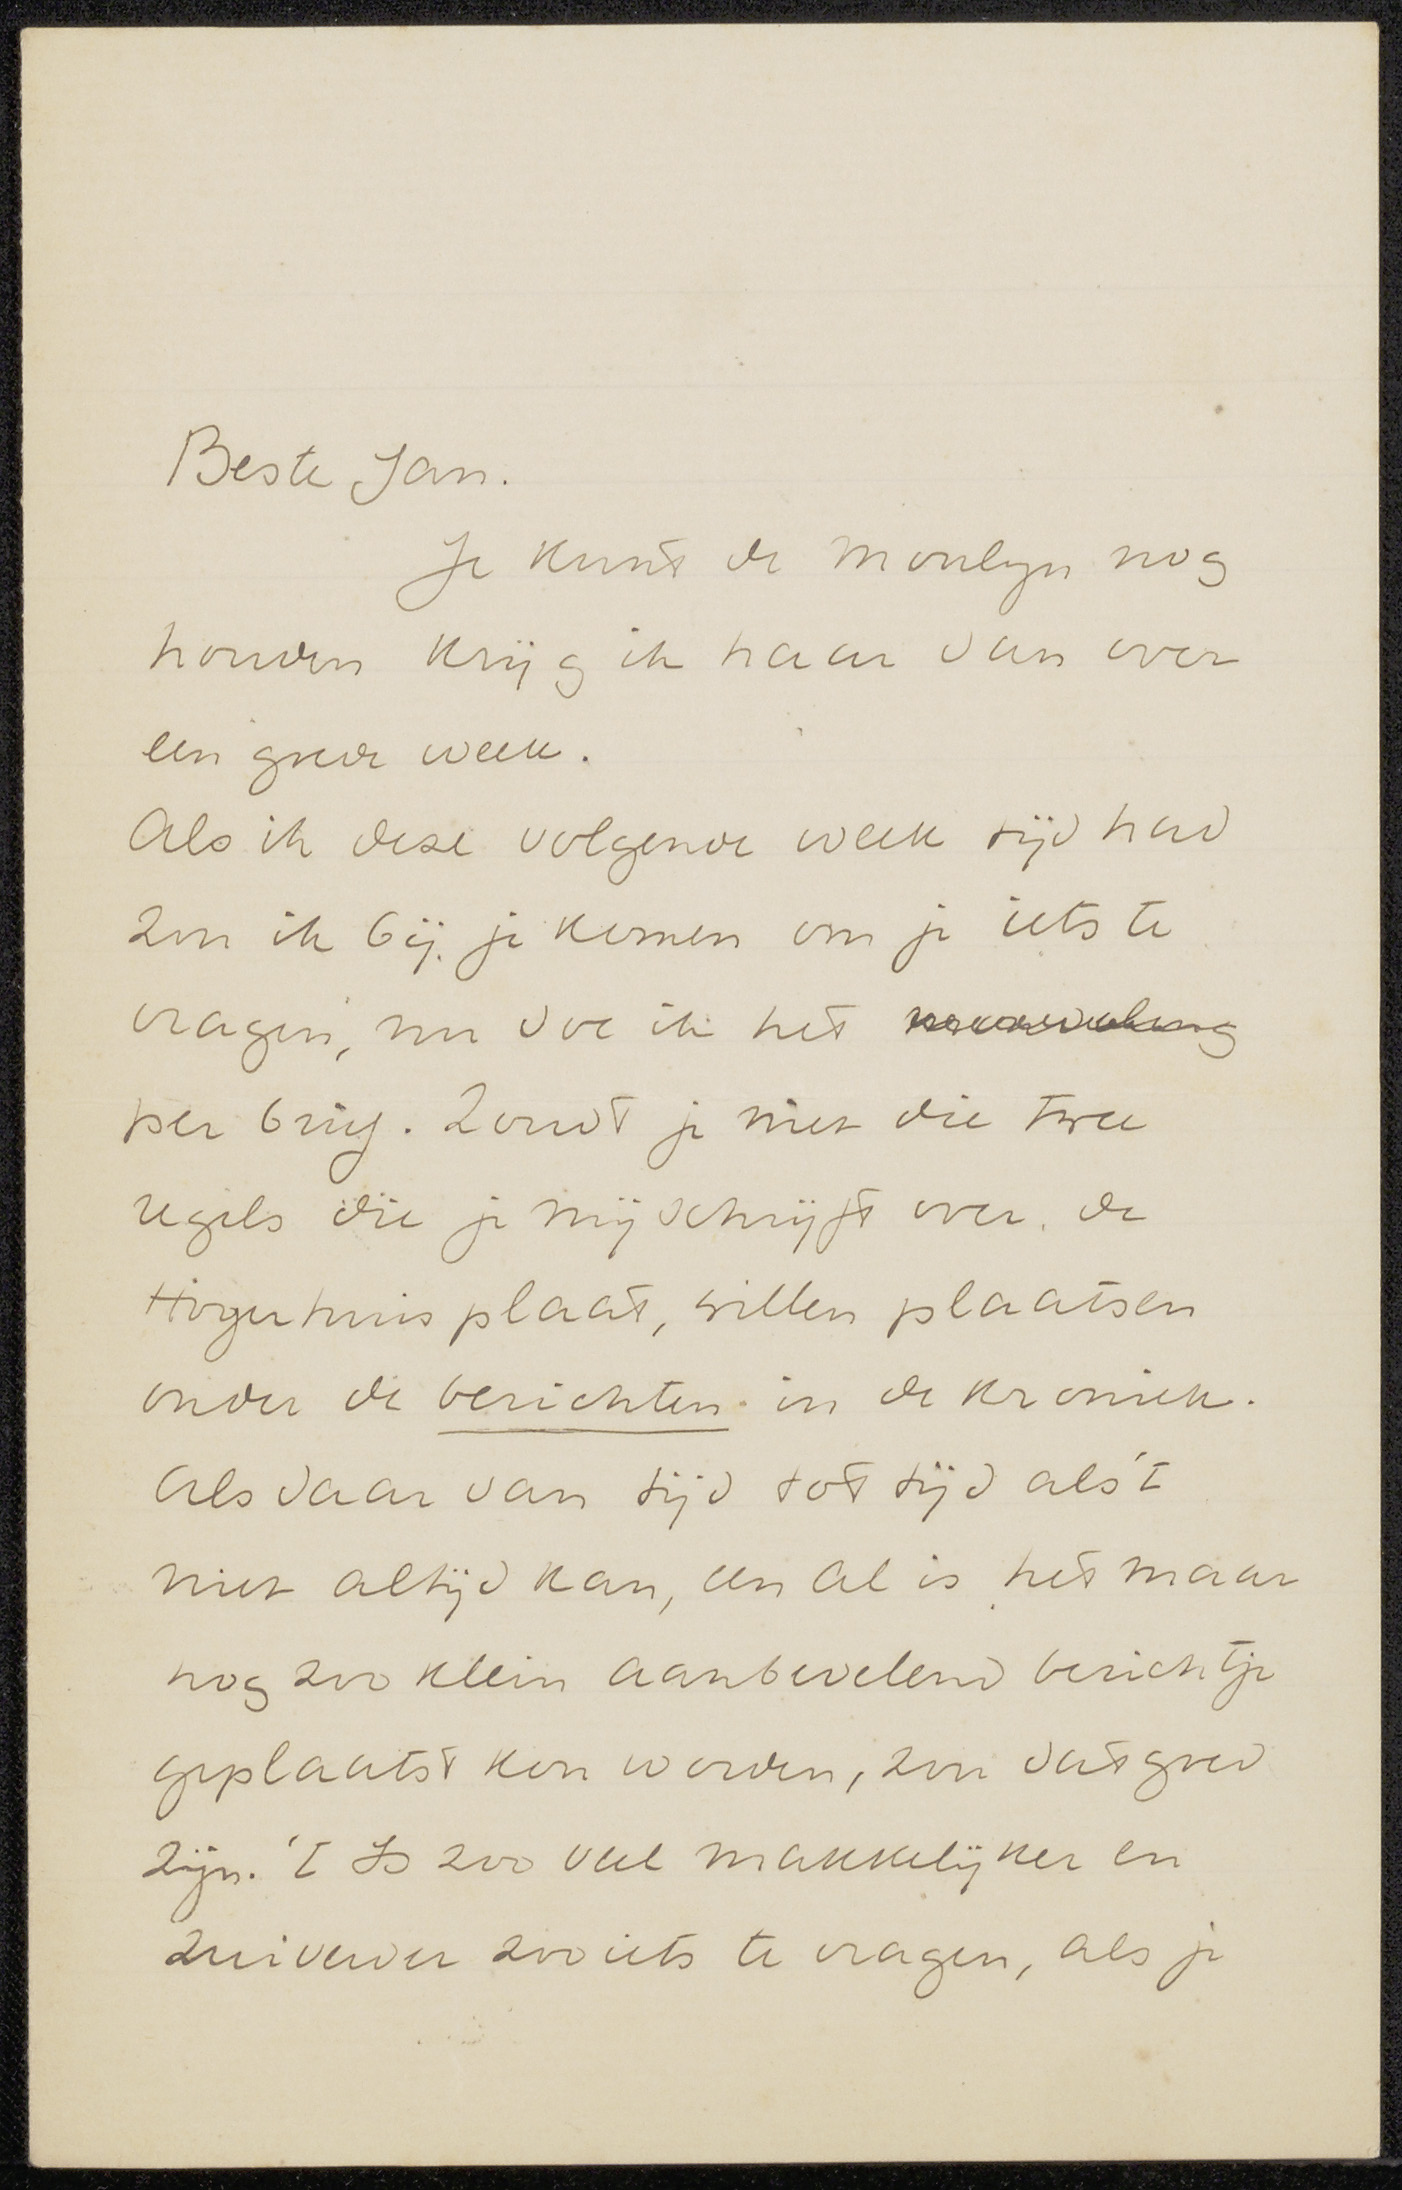 Beste Jan.
Je kunt de Moulyn nog
houden krijg ik haar dan over
een goede week.
Als ik deze volgende week tijd had
zou ik bij je komen om je iets te
vragen, nu doe ik het
per brief. Zoudt je niet die twee
regels die je mij schrijft over de
Hogerhuis plaat, willen plaatsen
onder de berichten in de Kroniek.
Als daar van tijd tot tijd als 't
niet altijd kan, een al is het maar
nog zoo klein aanbevelend berichtje
geplaatst kon worden, zou dat goed
zijn. 't Is zoo veel makkelijker en
zuiverder zoo iets te vragen, als je